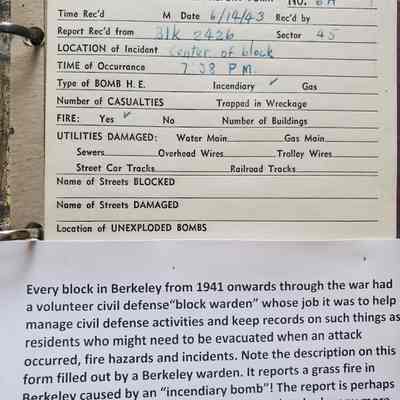 NO. 6A
Time Rec'd M Date 6/14/43 Rec'd by
Report Rec'd from Blk 2426 Sector 45
LOCATION of Incident Center of block
TIME of Occurrance 7:38 P.M.
Type of BOMB H. E. Incendiary ✓ Gas
Number of CASUALTIES Trapped in Wreckage
FIRE: Yes ✓ No Number of Buildings
UTILITIES DAMAGED: Water Main Gas Main
Sewers Overhead Wires Trolley Wires
Street Car Tracks Railroad Tracks
Name of Streets BLOCKED
Name of Streets DAMAGED
Location of UNEXPLODED BOMBS
Every block in Berkeley from 1941 onwards through the war had
a volunteer civil defense“block warden” whose job it was to help
manage civil defense activities and keep records on such things as
residents who might need to be evacuated when an attack
occurred, fire hazards and incidents. Note the description on this
form filled out by a Berkeley warden. It reports a grass fire in
Berkeley caused by an “incendiary bomb”! The report is perhaps